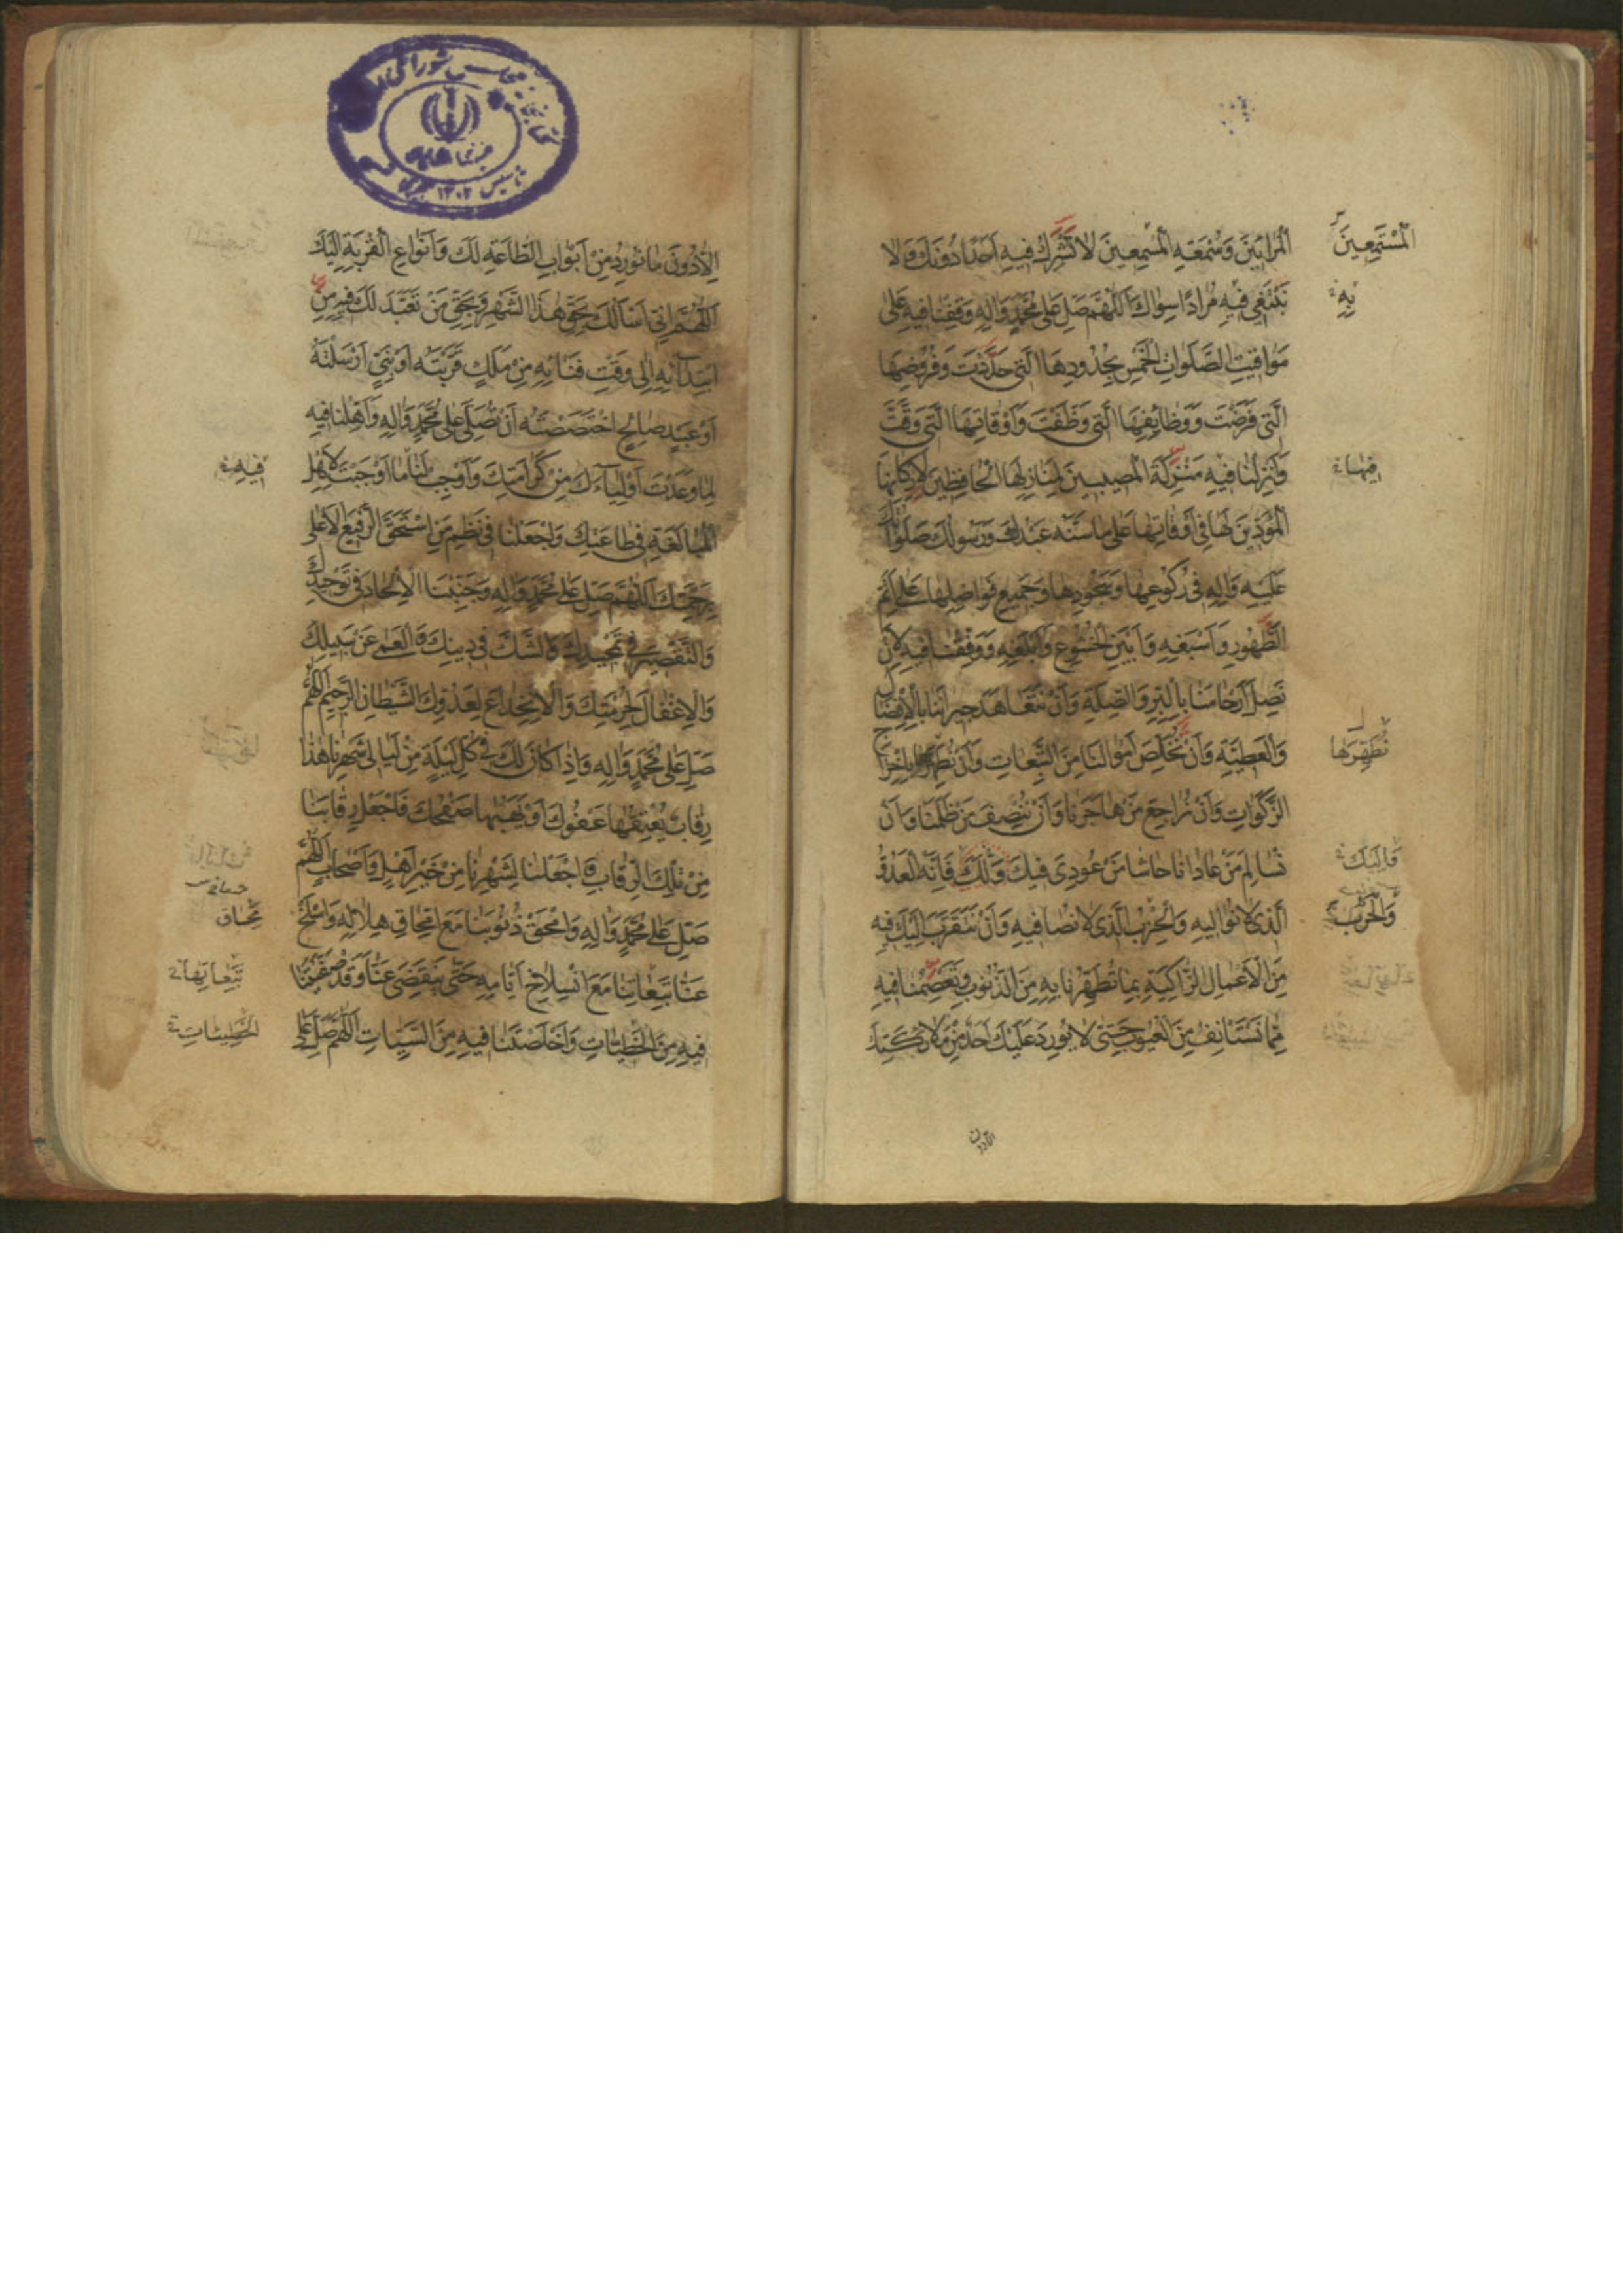 الْمُرائينَ وَسُمْعَةِ الْمُسْمِعينَ لا نُشْرِكُ فيهِ اَحَدًا دُونَكَ وَلا
الْمُسْتَمِعينَ
نَبْتَغي فيهِ مُرادًا سِواكَ اَللّهُمَّ صَلِّ عَلى مُحَمَّدٍ وَالِهِ وَقِفْنا فيهِ عَلى
بِهِ
مَواقيتِ الصَّلَواتِ الْخَمْسِ بِحُدُودِهَا الَّتي حَدَّدْتَ وَفُرُوضِهَا
الَّتي فَرَضْتَ وَوَظائِفِهَا الَّتي وَظَّفْتَ وَاَوْقاتِهَا الَّتي وَقَّتَّ
وَاَنْزِلْنا فيهِ مَنْزِلَةَ الْمُصيبينَ لِمَنازِلِهَا الْحافِظينَ لِاَرْكانِهَا
فيهَا
الْمُؤَدّينَ لَها في اَوْقاتِها عَلى ما سَنَّهُ عَبْدُكَ وَرَسُولُكَ صَلَواتُكَ
عَلَيْهِ وَالِهِ في رُكُوعِها وَسُجُودِها وَجَميعِ فَواضِلِها عَلى اَتَمِّ
الطَّهُورِ وَاَسْبَغِهِ وَاَبْيَنِ الْخُشُوعِ وَاَبْلَغِهِ وَوَفِّقْنا فيهِ لِاَنْ
نَصِلَ اَرْحامَنا بِالْبِرِّ وَالصِّلَةِ وَاَنْ نَتَعاهَدَ جيرانَنا بِالْاِفْضالِ
وَالْعَطِيَّةِ وَاَنْ نُخَلِّصَ اَمْوالَنا مِنَ التَّبِعاتِ وَاَنْ نُطَهِّرَها بِاِخْراجِ
نُطَهِّرَها
الزَّكَواتِ وَاَنْ نُراجِعَ مَنْ هاجَرَنا وَاَنْ نُنْصِفَ مَنْ ظَلَمَنا وَاَنْ
نُسالِمَ مَنْ عادانا حاشا مَنْ عُودِيَ فيكَ وَلَكَ فَاِنَّهُ الْعَدُوُّ
الَّذي لا نُواليهِ وَالْحِزْبُ الَّذي لا نُصافيهِ وَاَنْ نَتَقَرَّبَ اِلَيْكَ فيهِ
وَالْحَرْبُ
مِنَ الْاَعْمالِ الزّاكِيَةِ بِما تُطَهِّرُنا بِهِ مِنَ الذُّنُوبِ وَتَعْصِمُنا فيهِ
مِمّا نَسْتَانِفُ مِنَ الْعُيُوبِ حَتّى لا يُورِدَ عَلَيْكَ اَحَدٌ مِنْ مَلائِكَتِكَ
اِلّا دُونَ ما نُورِدُ مِنْ اَبْوابِ الطّاعَةِ لَكَ وَاَنْواعِ الْقُرْبَةِ اِلَيْكَ
اَللّهُمَّ اِنّي اَسْاَلُكَ بِحَقِّ هذَا الشَّهْرِ وَبِحَقِّ مَنْ تَعَبَّدَ لَكَ فيهِ مِنِ
ابْتِدائِهِ اِلى وَقْتِ فَنائِهِ مِنْ مَلَكٍ قَرَّبْتَهُ اَوْ نَبِيٍّ اَرْسَلْتَهُ
اَوْ عَبْدٍ صالِحٍ اخْتَصَصْتَهُ اَنْ تُصَلِّيَ عَلى مُحَمَّدٍ وَالِهِ وَاَهِّلْنا فيهِ
لِما وَعَدْتَ اَوْلِياءَكَ مِنْ كَرامَتِكَ وَاَوْجِبْ لَنا ما اَوْجَبْتَ لِاَهْلِ
فيهِ
الْمُبالَغَةِ في طاعَتِكَ وَاجْعَلْنا في نَظْمِ مَنِ اسْتَحَقَّ الرَّفيعَ الْاَعْلى
بِرَحْمَتِكَ اَللّهُمَّ صَلِّ عَلى مُحَمَّدٍ وَالِهِ وَجَنِّبْنَا الْاِلْحادَ في تَوْحيدِكَ
وَالتَّقْصيرَ في تَمْجيدِكَ وَالشَّكَّ في دينِكَ وَالْعَمى عَنْ سَبيلِكَ
وَالْاِغْفالَ لِحُرْمَتِكَ وَالْاِنْخِداعَ لِعَدُوِّكَ الشَّيْطانِ الرَّجيمِ اَللّهُمَّ
صَلِّ عَلى مُحَمَّدٍ وَالِهِ وَاِذا كانَ لَكَ في كُلِّ لَيْلَةٍ مِنْ لَيالي شَهْرِنا هذا
رِقابٌ يُعْتِقُها عَفْوُكَ اَوْ يَهَبُها صَفْحُكَ فَاجْعَلْ رِقابَنا
مِنْ تِلْكَ الرِّقابِ وَاجْعَلْنا لِشَهْرِنا مِنْ خَيْرِ اَهْلٍ وَاَصْحابٍ اَللّهُمَّ
صَلِّ عَلى مُحَمَّدٍ وَالِهِ وَامْحَقْ ذُنُوبَنا مَعَ امِّحاقِ هِلالِهِ وَاسْلَخْ
مُحاق
عَنّا تَبِعاتِنا مَعَ انْسِلاخِ اَيّامِهِ حَتّى يَنْقَضِيَ عَنّا وَقَدْ صَفَّيْتَنا
تَبِعاتِها
فيهِ مِنَ الْخَطيئاتِ وَاَخْلَصْتَنا فيهِ مِنَ السَّيِّئاتِ اَللّهُمَّ صَلِّ عَلى
الْخَطيئاتِ